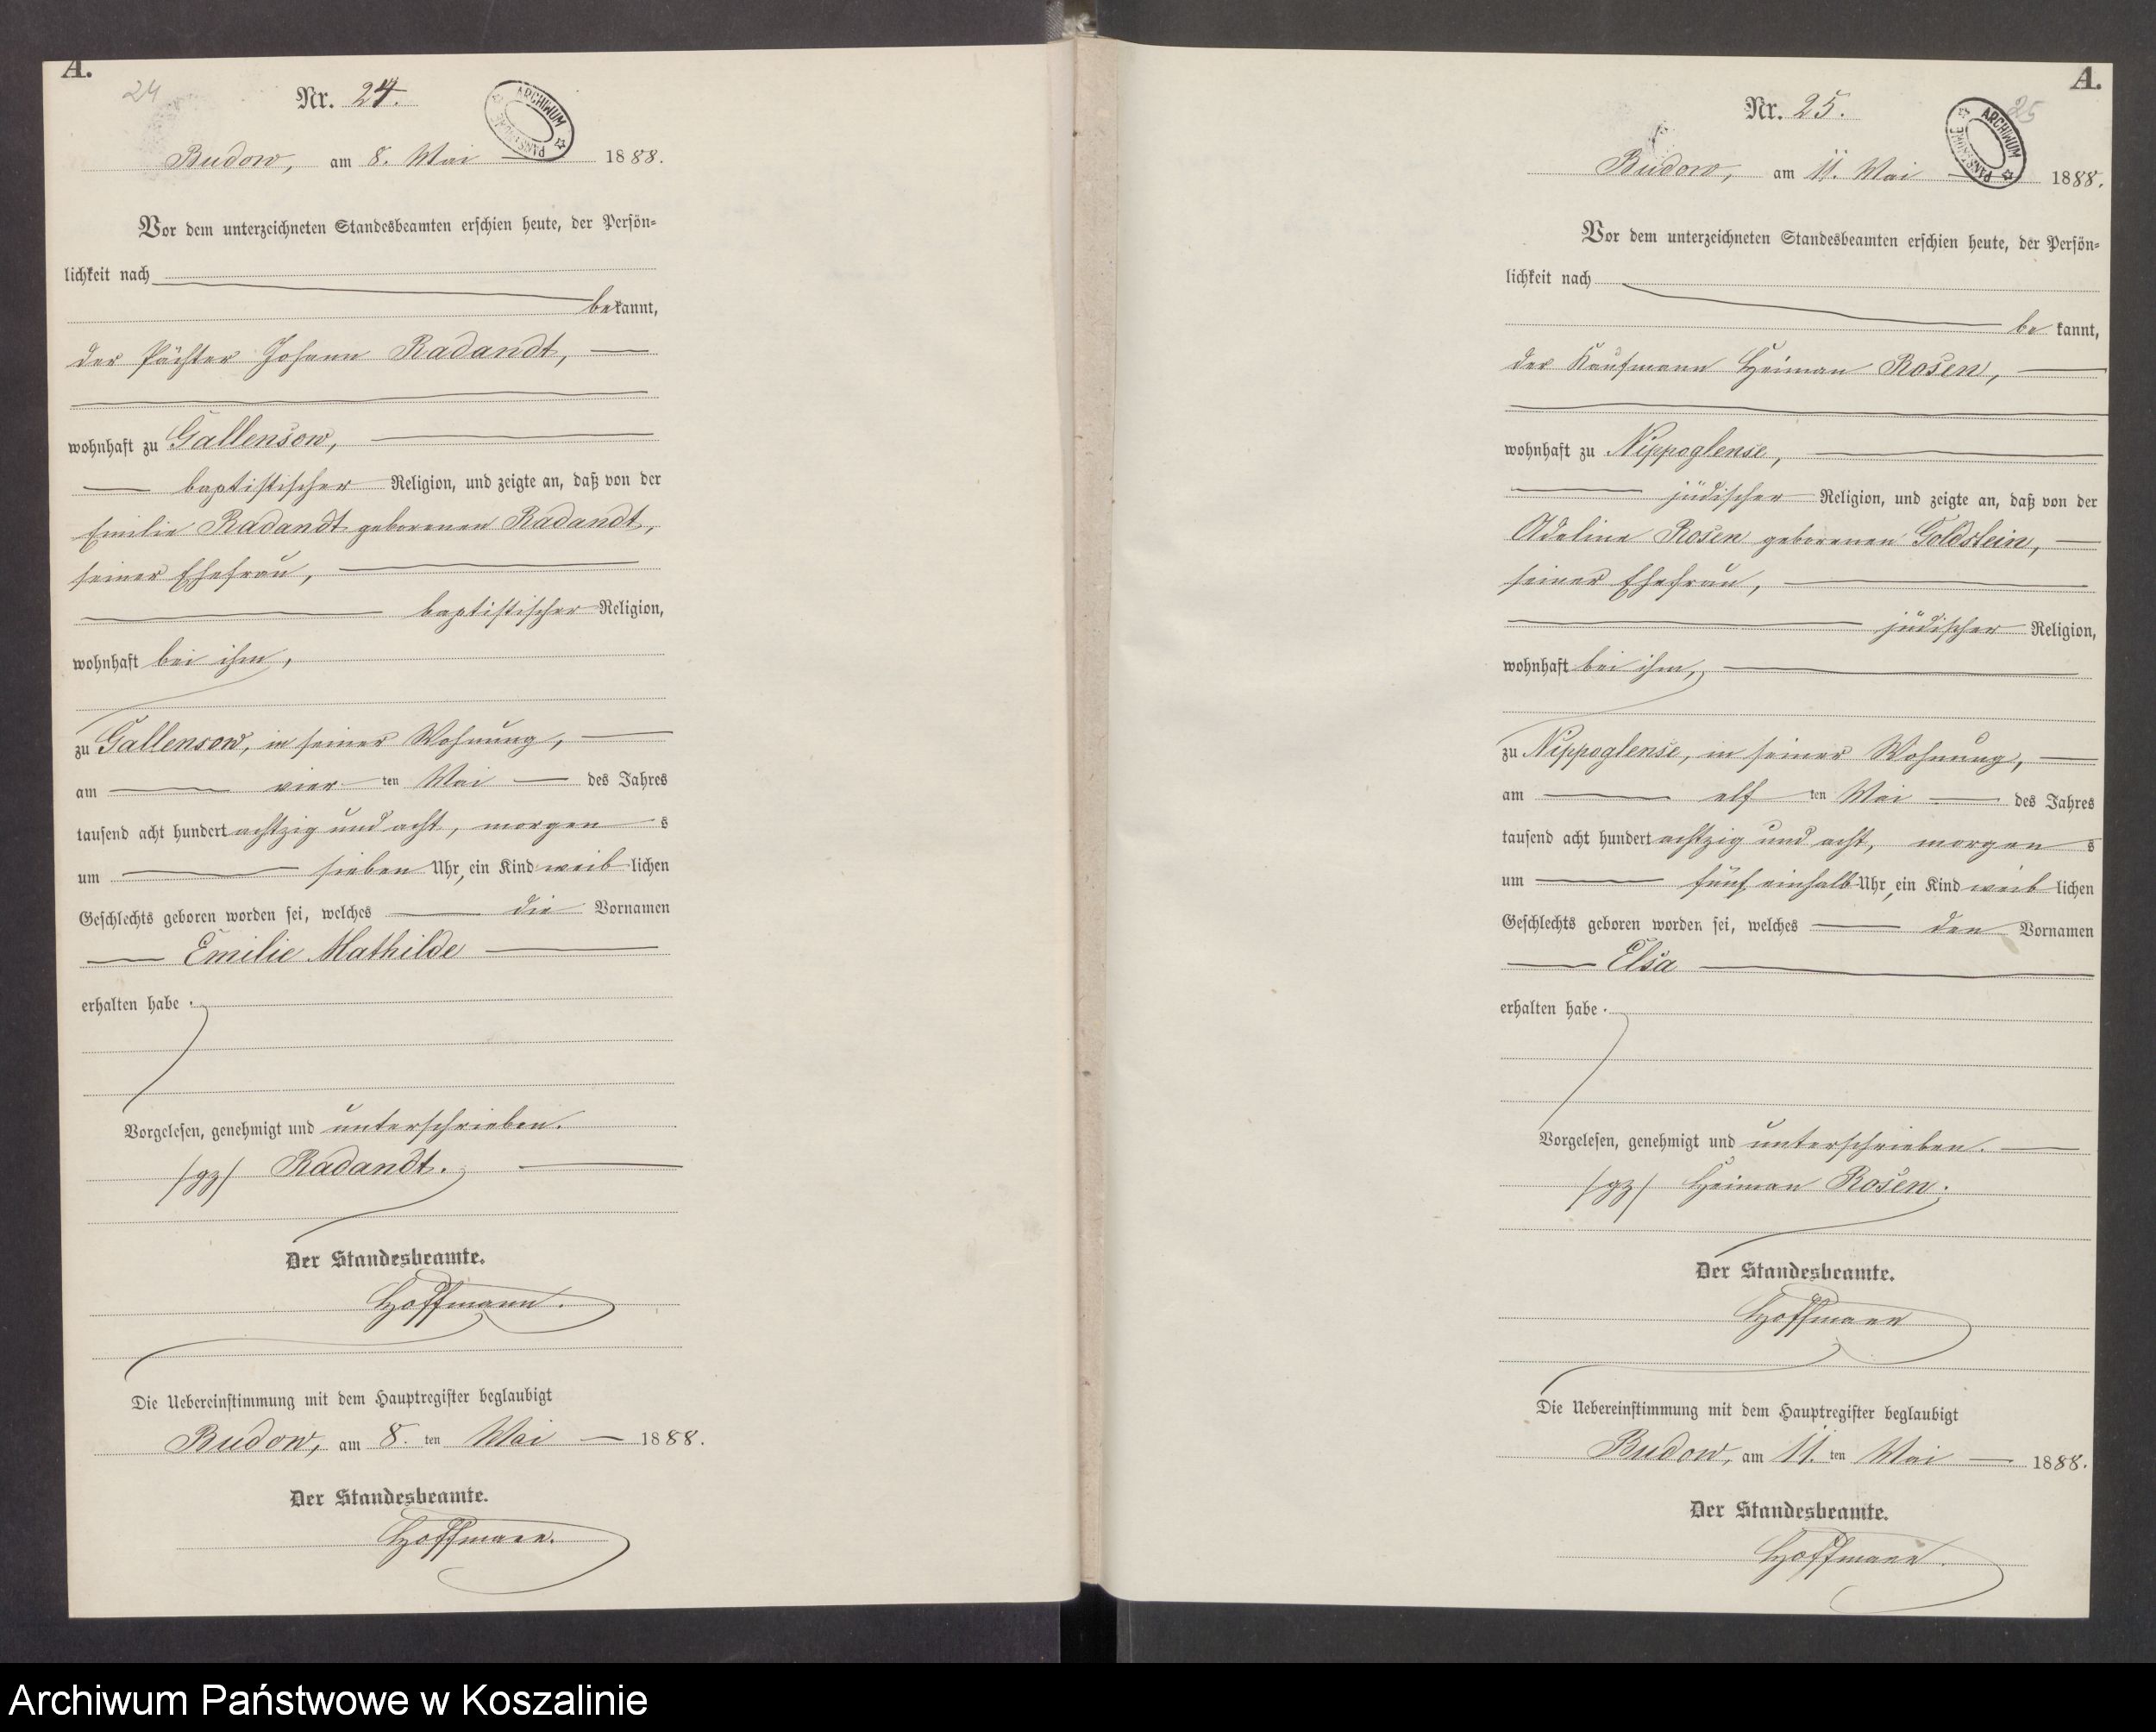 A.
24
Nr. 24.
ARCHIWUM PAŃSTWOWE
Budow, am 8. Mai 1888.
Vor dem unterzeichneten Standesbeamten erschien heute, der Persön-
lichkeit nach
bekannt,
der Pächter Johann Radandt,
wohnhaft zu Gallensow,
baptistischer Religion, und zeigte an, daß von der
Emilie Radandt geborenen Radandt,
seiner Ehefrau,
baptistischer Religion,
wohnhaft bei ihm,
zu Gallensow, in seiner Wohnung,
am vier ten Mai des Jahres
tausend acht hundert achtzig und acht, morgens
um sieben Uhr, ein Kind weiblichen
Geschlechts geboren worden sei, welches die Vornamen
Emilie Mathilde
erhalten habe.
Vorgelesen, genehmigt und unterschrieben.
/gz/ Radandt.
Der Standesbeamte.
Hoffmann.
Die Uebereinstimmung mit dem Hauptregister beglaubigt
Budow, am 8. ten Mai 1888.
Der Standesbeamte.
Hoffmann.
A.
25
Nr. 25.
ARCHIWUM PAŃSTWOWE
Budow, am 11. Mai 1888.
Vor dem unterzeichneten Standesbeamten erschien heute, der Persön-
lichkeit nach
be kannt,
der Kaufmann Heiman Rosen,
wohnhaft zu Nippoglense,
jüdischer Religion, und zeigte an, daß von der
Adeline Rosen geborenen Goldstein,
seiner Ehefrau,
jüdischer Religion,
wohnhaft bei ihm,
zu Nippoglense, in seiner Wohnung,
am elf ten Mai des Jahres
tausend acht hundert achtzig und acht, morgens
um fünf einhalb Uhr, ein Kind weiblichen
Geschlechts geboren worden sei, welches den Vornamen
Elsa
erhalten habe.
Vorgelesen, genehmigt und unterschrieben.
/gz/ Heiman Rosen.
Der Standesbeamte.
Hoffmann
Die Uebereinstimmung mit dem Hauptregister beglaubigt
Budow, am 11. ten Mai 1888.
Der Standesbeamte.
Hoffmann.
Archiwum Państwowe w Koszalinie